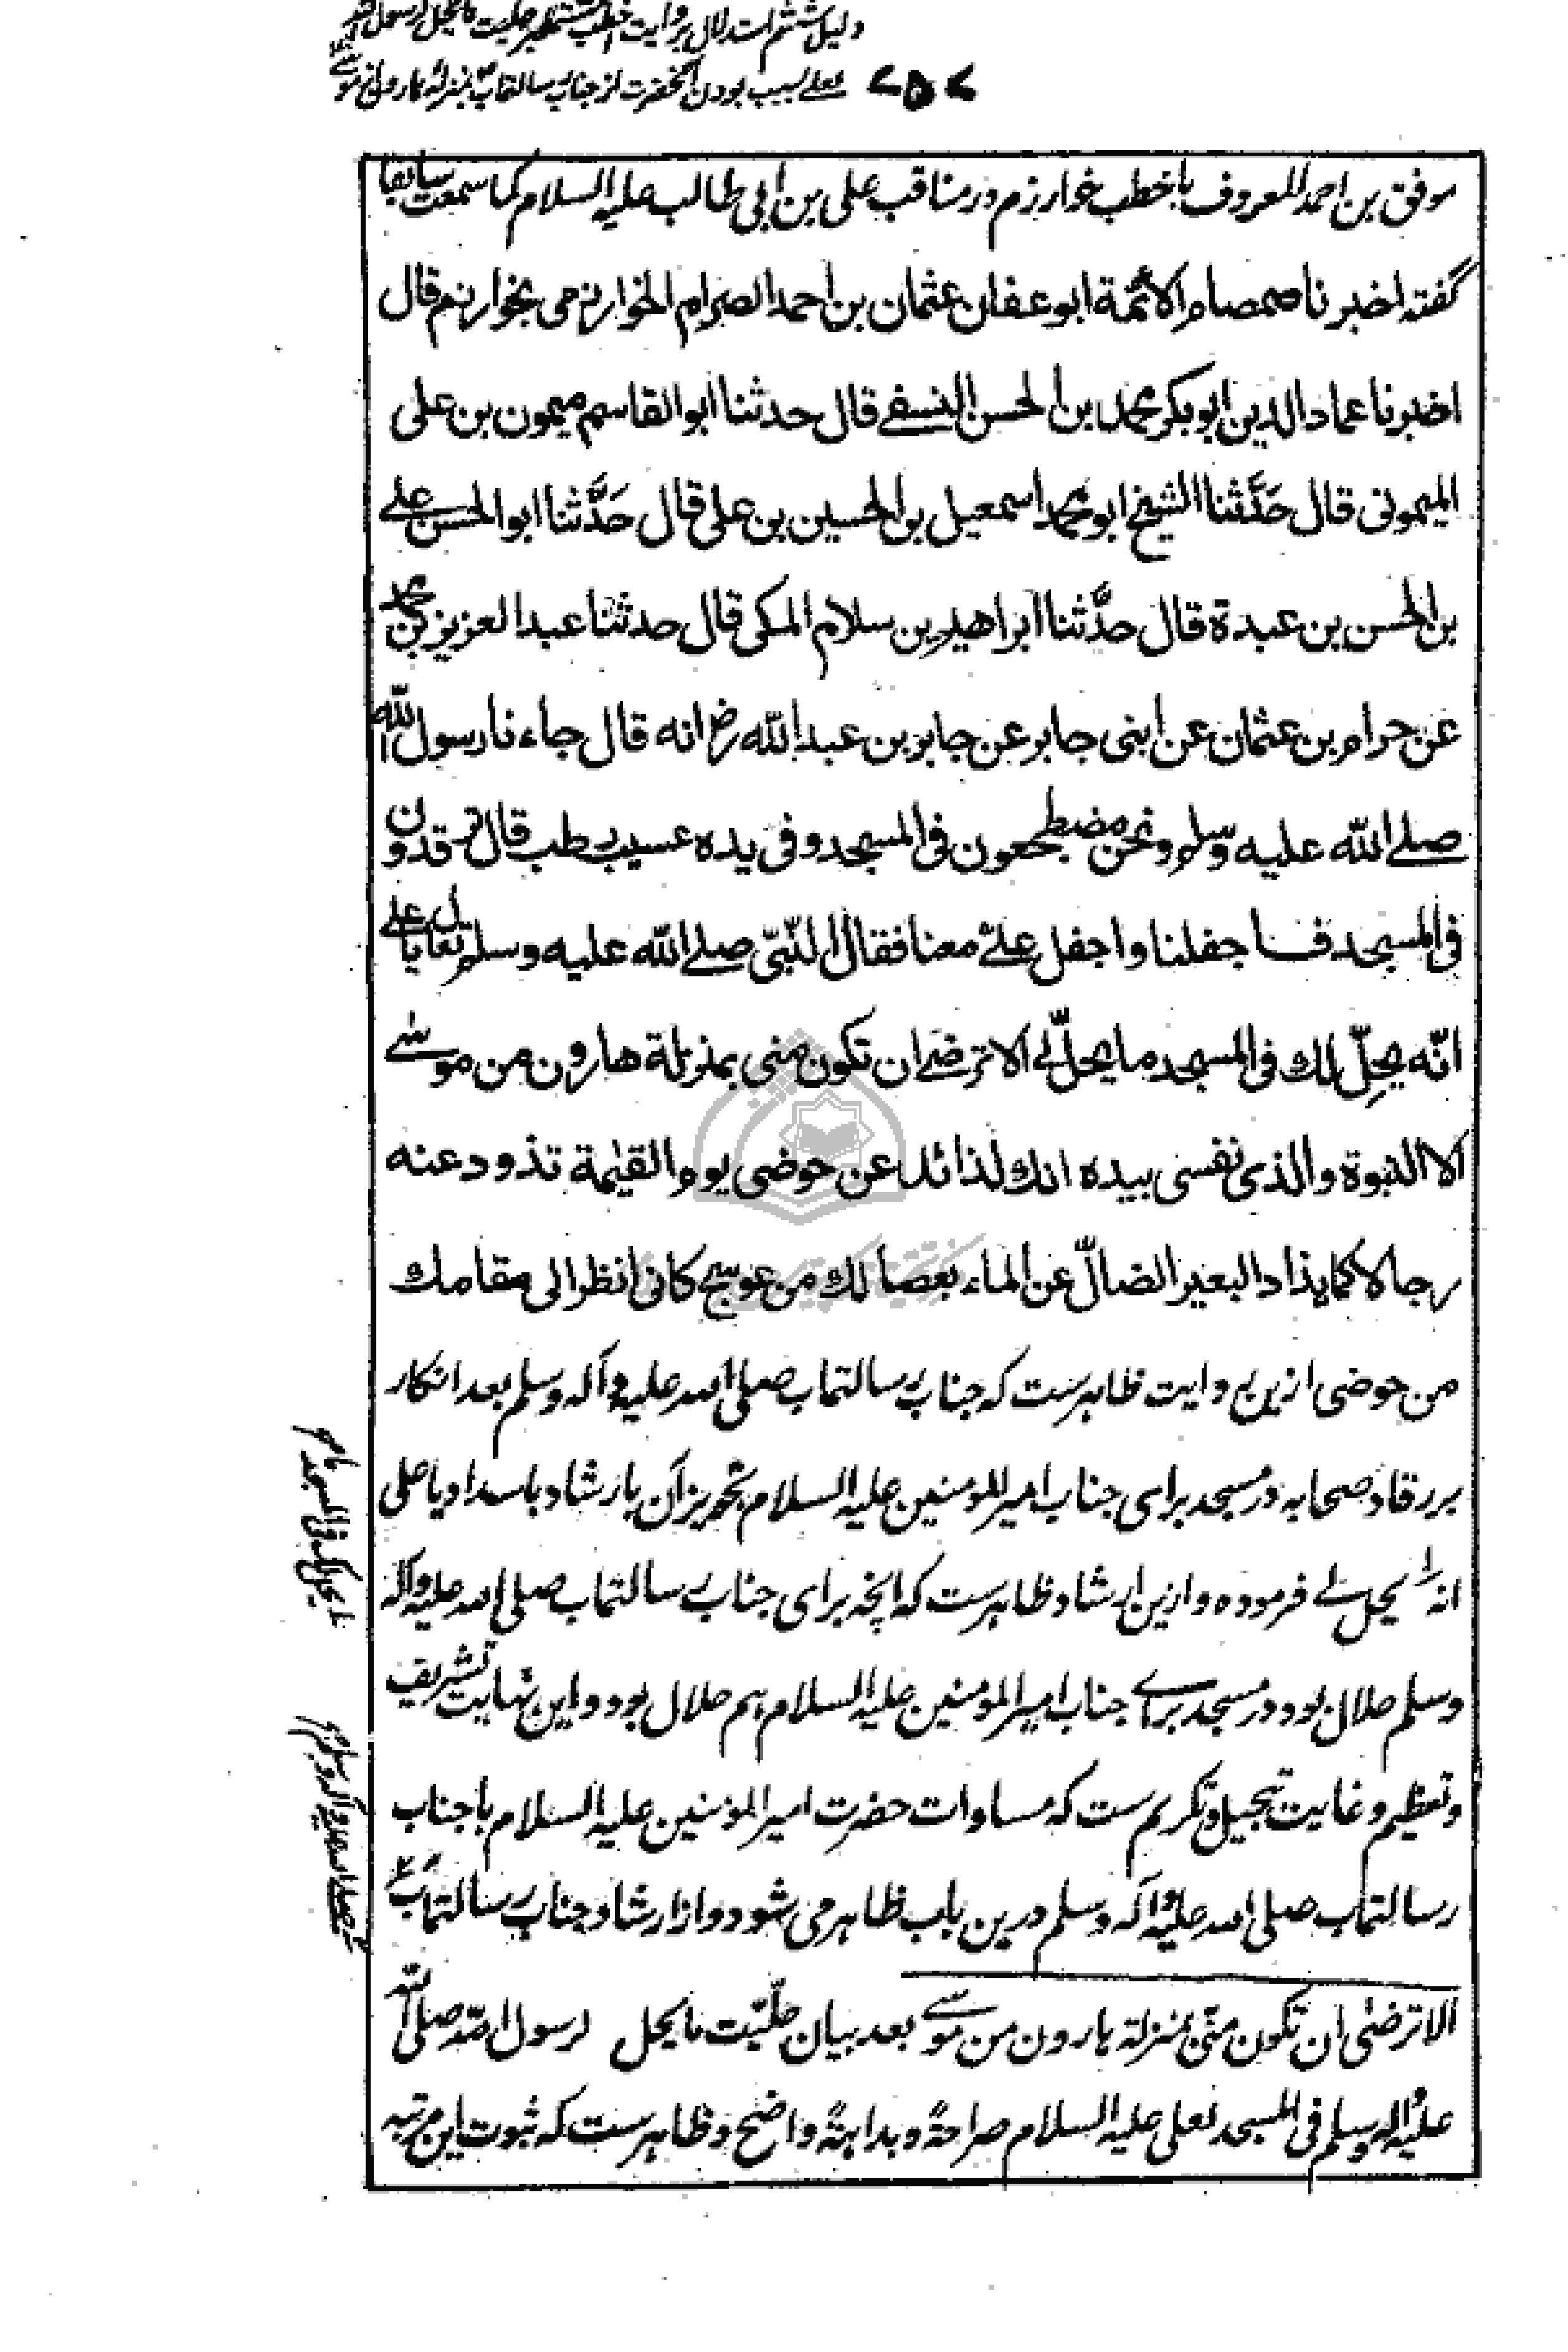 دلیل ششم استدلال بروایت اخطب حلیت ما یحل لرسول الله
لعلی بسبب بودن آنحضرت از جناب رسالتمآب بمنزله هارون از موسی
۷۵۷
موفق بن احمد المعروف باخطب خوارزم در مناقب علی بن ابی طالب علیه السلام کما سمعت سابقا
گفته اخبرنا صمصام الائمة ابو عفان عثمان بن احمد الصرام الخوارزمی بخوارزم قال
اخبرنا عماد الدین ابو بکر محمد بن الحسن النسفے قال حدثنا ابو القاسم میمون بن علی
المیمونی قال حَدَّثنا الشیخ ابو محمد اسمعیل بن الحسین بن علی قال حَدَّثنا ابو الحسن علے
بن الحسن بن عبدة قال حدَّثنا ابراهیم بن سلام المکی قال حدثنا عبد العزیز بن محمد
عن حرام بن عثمان عن ابنی جابر عن جابر بن عبد الله رض انه قال جاءنا رسول الله
صلے الله علیه وسلم ونحن مضطجعون فی المسجد وفی یده عسیب رطب قال ترقدون
فی المسجد فاجفلنا واجفل علیٌّ معنا فقال النّبیّ صلے الله علیه وسلم تعال یا علے
انّه یحِلّ لك فی المسجد ما یحلّ لے الا ترضے ان تکون منی بمنزلة هارون من موسٰے
الا النبوة والذی نفسی بیده انك لذائد عن حوضی یوم القیٰمة تذود عنه
رجالا کما یذاد البعیر الضالّ عن الماء بعصا لك من عوسج کانی انظر الی مقامك
من حوضی ازین روایت ظاهرست که جناب رسالتمآب صلی الله علیه وآله وسلم بعد انکار
بر رقاد صحابه در مسجد برای جناب امیر المومنین علیه السلام تجویز آن بارشاد باسداد یا علی
انه یحل لے فرموده وازین ارشاد ظاهرست که آنچه برای جناب رسالتمآب صلی الله علیه وآله
وسلم حلال بود در مسجد براے جناب امیر المومنین علیه السلام هم حلال بود واین نهایت تشریف
وتعظیم وغایت تبجیل وتکریم ست که مساوات حضرت امیر المومنین علیه السلام باجناب
رسالتمآب صلی الله علیه وآله وسلم درین باب ظاهر می شود واز ارشاد جناب رسالتمآب
الا ترضیٰ ان تکون منّی بمنزلة هارون من موسے بعد بیان حلّیّت ما یحل لرسول الله صلی الله
علیه وآله وسلم فی المسجد لعلی علیه السلام صراحةً وبداهةً واضح وظاهرست که ثبوت این مرتبه